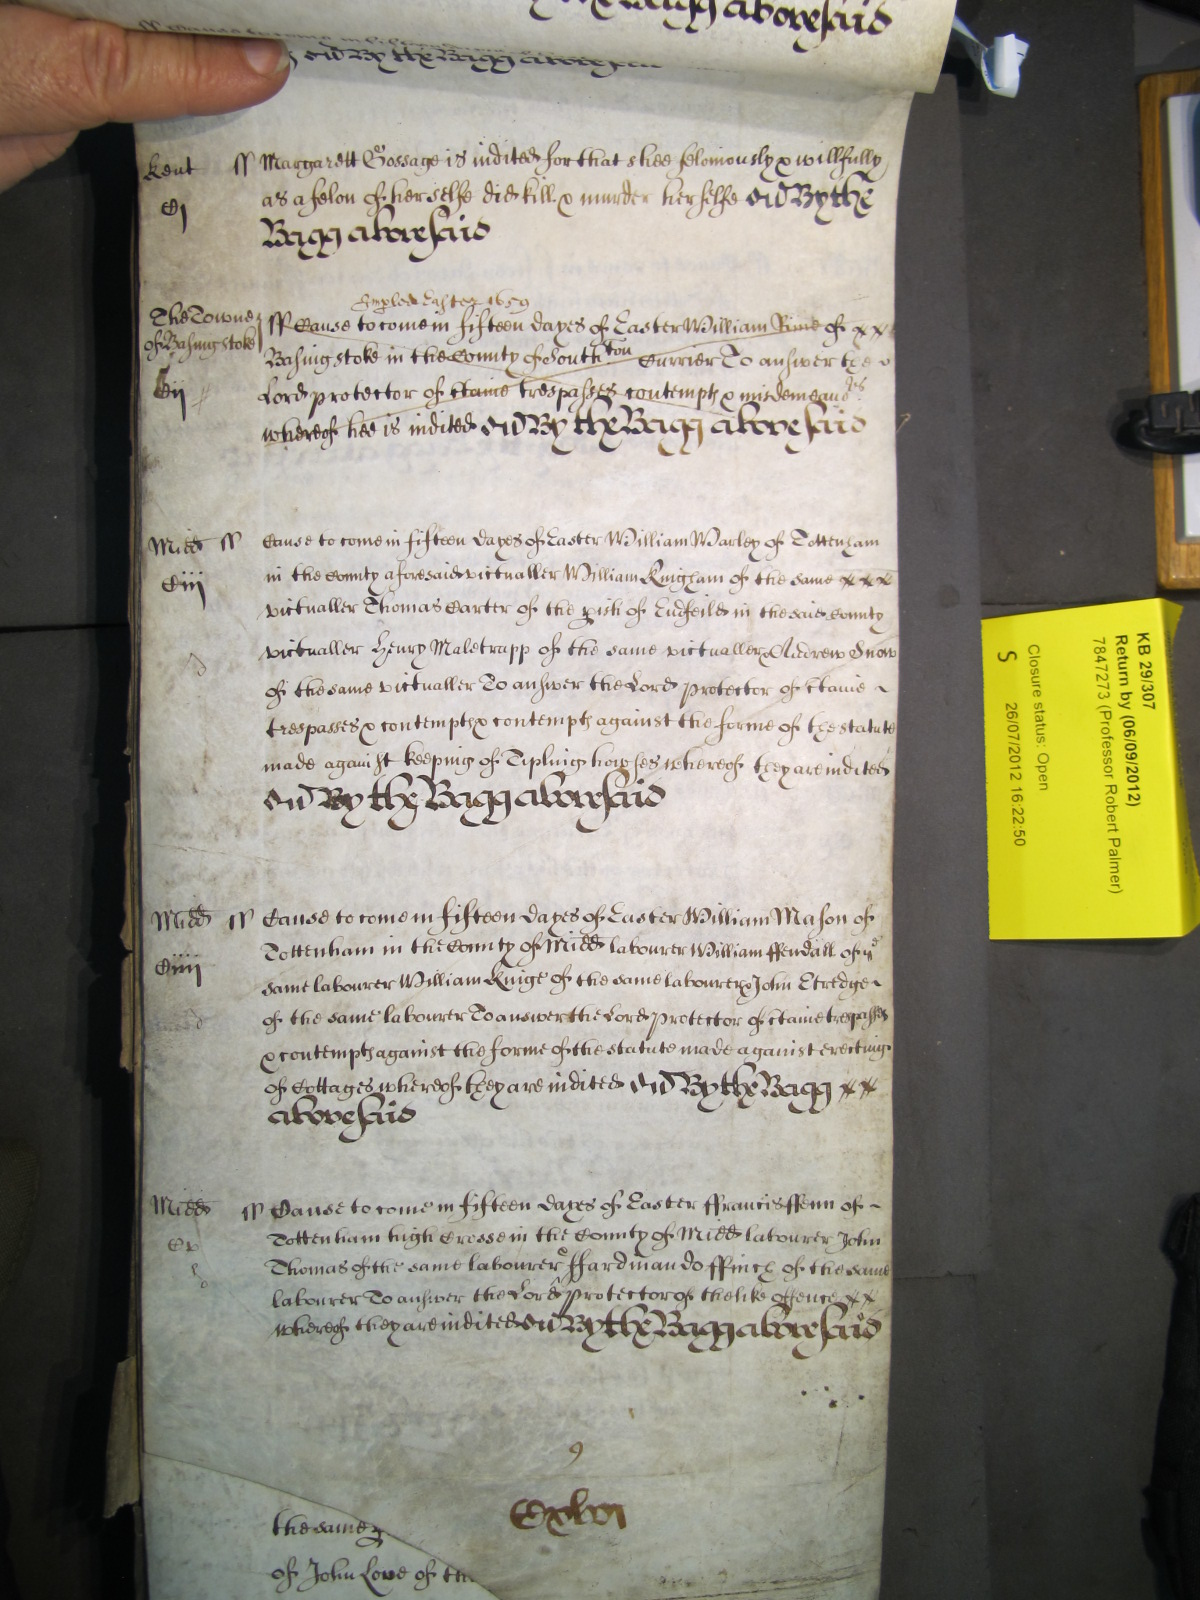 abovesaid
By the Bagg abovesaid
Kent ss Margarett Gossage is indited for that shee feloniously & willfully
Cj as a felon of her selfe did kill & murder her selfe And By the
Bagg abovesaid
Easter 1659
The Towne ss Cause to come in fifteen dayes of Easter William of x x
of Basingstoke Basingstoke in the County of South'ton Currier To answer the
Cij Lord protector of c'taine trespasses contempts & misdemeano'rs
whereof hee is indited And By the Bagg abovesaid
Midd ss Cause to come in fifteen dayes of Easter William Warley of Tottenham
Ciij in the County aforesaid victualler William Knigham of the same x x x
victualler Thomas Carter of the p'ish of Endfeild in the said County
victualler Henry Maletrapp of the same victualler & Andrew Snow
of the same victualler To answer the Lord protector of c'taine
trespasses & contempts & contempts against the forme of the statute
made against keeping of Tipling howses whereof they are indited
And By the Bagg abovesaid
Midd ss Cause to come in fifteen dayes of Easter William Mason of
Ciiij Tottenham in the County of Midd labourer William ffendall of ye
same labourer William Knige of the same labourer & John Etredge
of the same labourer To answer the Lord protector of c'taine trespasses
& contempts against the forme of the statute made against erecting
of Cottages whereof they are indited And By the Bagg x x
abovesaid
Midd ss Cause to come in fifteen dayes of Easter ffrancis ffenn of
Cv Tottenham high Crosse in the County of Midd labourer John
Thomas of the same labourer & ffardinando ffinch of the same
labourer To answer the Lord protector of the like offence x x
whereof they are indited And By the Bagg abovesaid
9
Cxlvi
the same
of John Love of the
KB 29/307
Return by (06/09/2012)
7847273 (Professor Robert Palmer)
Closure status: Open
S 26/07/2012 16:22:50